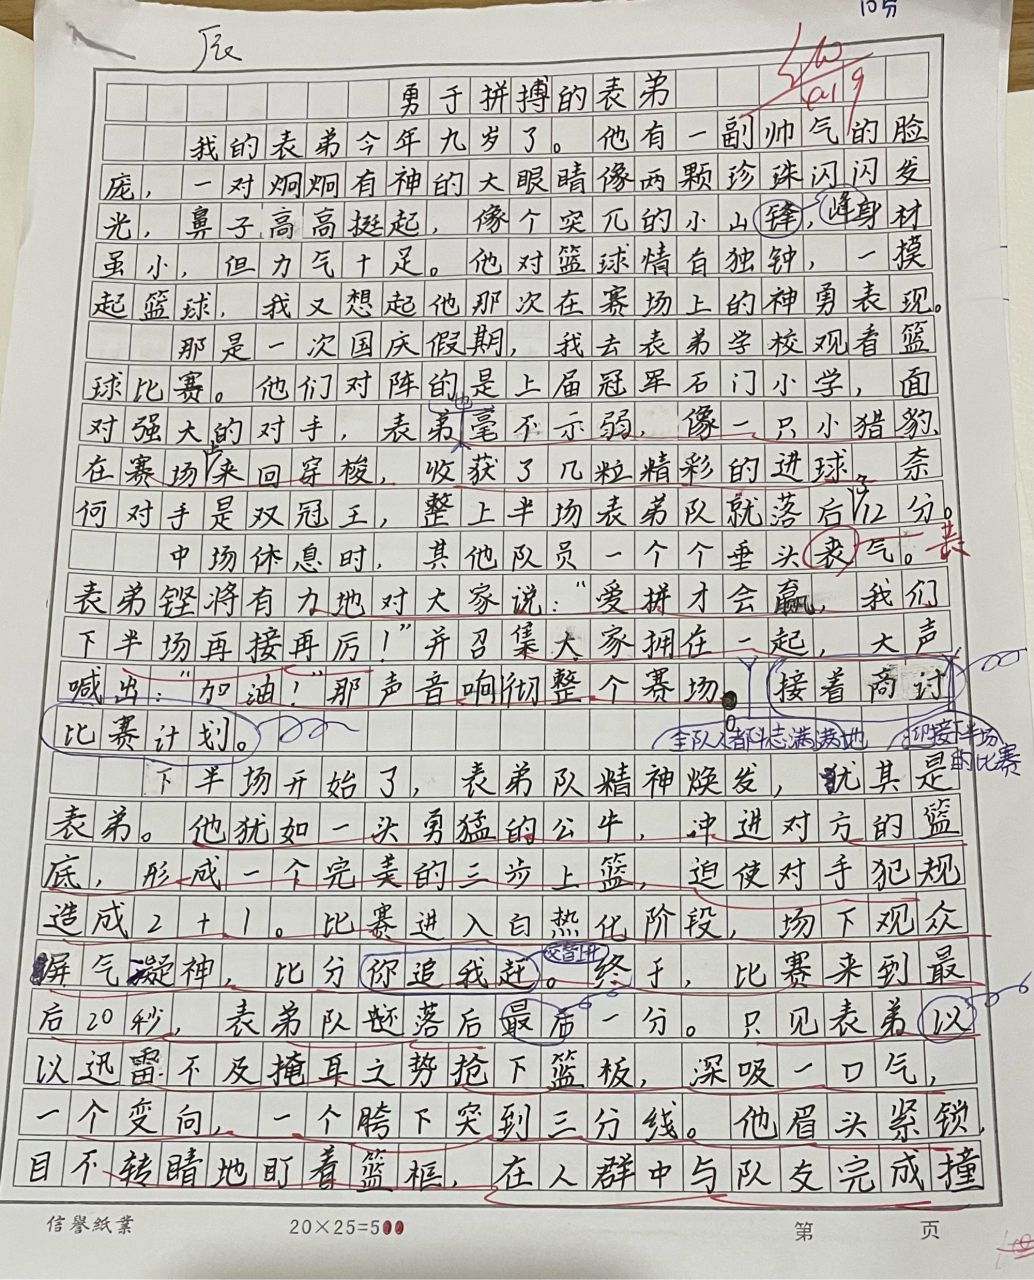 10分
辰
勇于拼搏的表弟
我的表弟今年九岁了。他有一副帅气的脸
庞，一对炯炯有神的大眼睛像两颗珍珠闪闪发
光，鼻子高高挺起，像个突兀的小山锋，峰身材
虽小，但力气十足。他对篮球情有独钟，一摸
起篮球，我又想起他那次在赛场上的神勇表现。
那是一次国庆假期，我去表弟学校观看篮
球比赛。他们对阵的是上届冠军石门小学，面
对强大的对手，表弟也毫不示弱，像一只小猎豹
在赛场上来回穿梭，收获了几粒精彩的进球，奈
何对手是双冠王，整上半场表弟队就落后了12分。
中场休息时，其他队员一个个垂头丧气。丧
表弟铿将有力地对大家说：“爱拼才会赢，我们
下半场再接再厉！”并召集大家拥在一起，大声
喊出：“加油！”那声音响彻整个赛场。接着商讨
比赛计划。
全队人都斗志满满地迎接下半场
的比赛
下半场开始了，表弟队精神焕发，犹其是
表弟。他犹如一头勇猛的公牛，冲进对方的篮
底，形成一个完美的三步上篮，迫使对手犯规
造成2+1。比赛进入白热化阶段，场下观众
屏气凝神，比分你追我赶。交替上升终于，比赛来到最
后20秒，表弟队还落后最后一分。只见表弟以
以迅雷不及掩耳之势抢下篮板，深吸一口气，
一个变向，一个胯下突到三分线。他眉头紧锁，
目不转睛地盯着篮框，在人群中与队友完成撞
信誉紙業
20×25=500
第 页